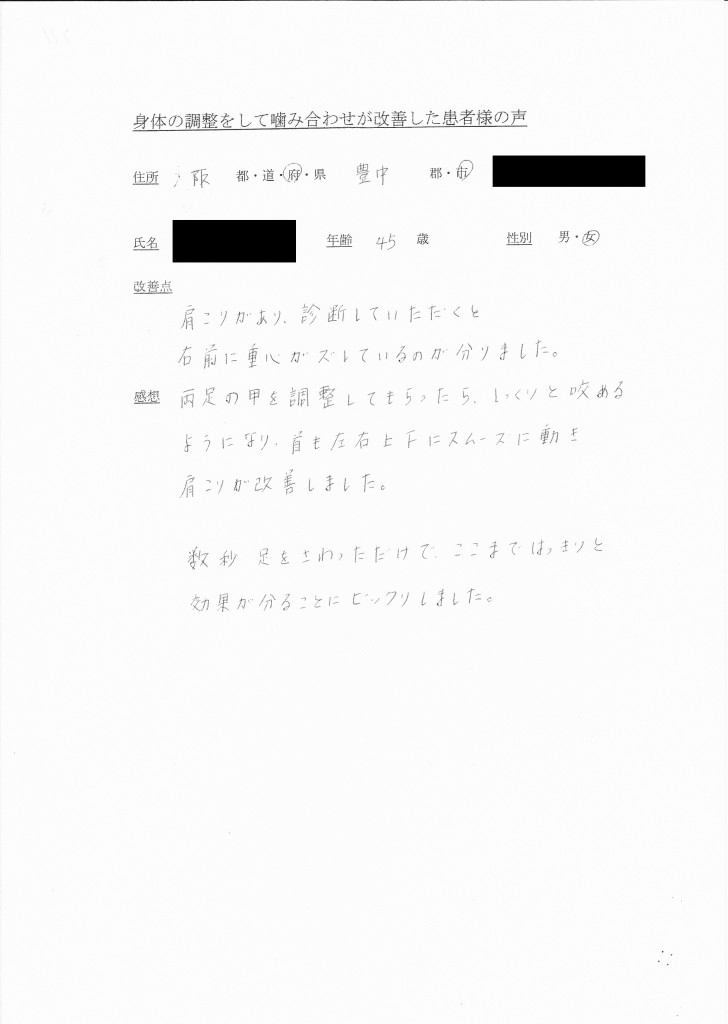 身体の調整をして噛み合わせが改善した患者様の声
住所 大阪 都・道・府・県 豊中 郡・市
氏名 年齢 45 歳 性別 男・女
改善点
肩こりがあり、診断していただくと
右前に重心がズしているのが分りました。
感想 両足の甲を調整してもらったら、しっくりと咬める
ようになり、首も左右上下にスムーズに動き
肩こりが改善しました。
数秒 足をさわっただけで、ここまではっきりと
効果が分ることにビックリしました。